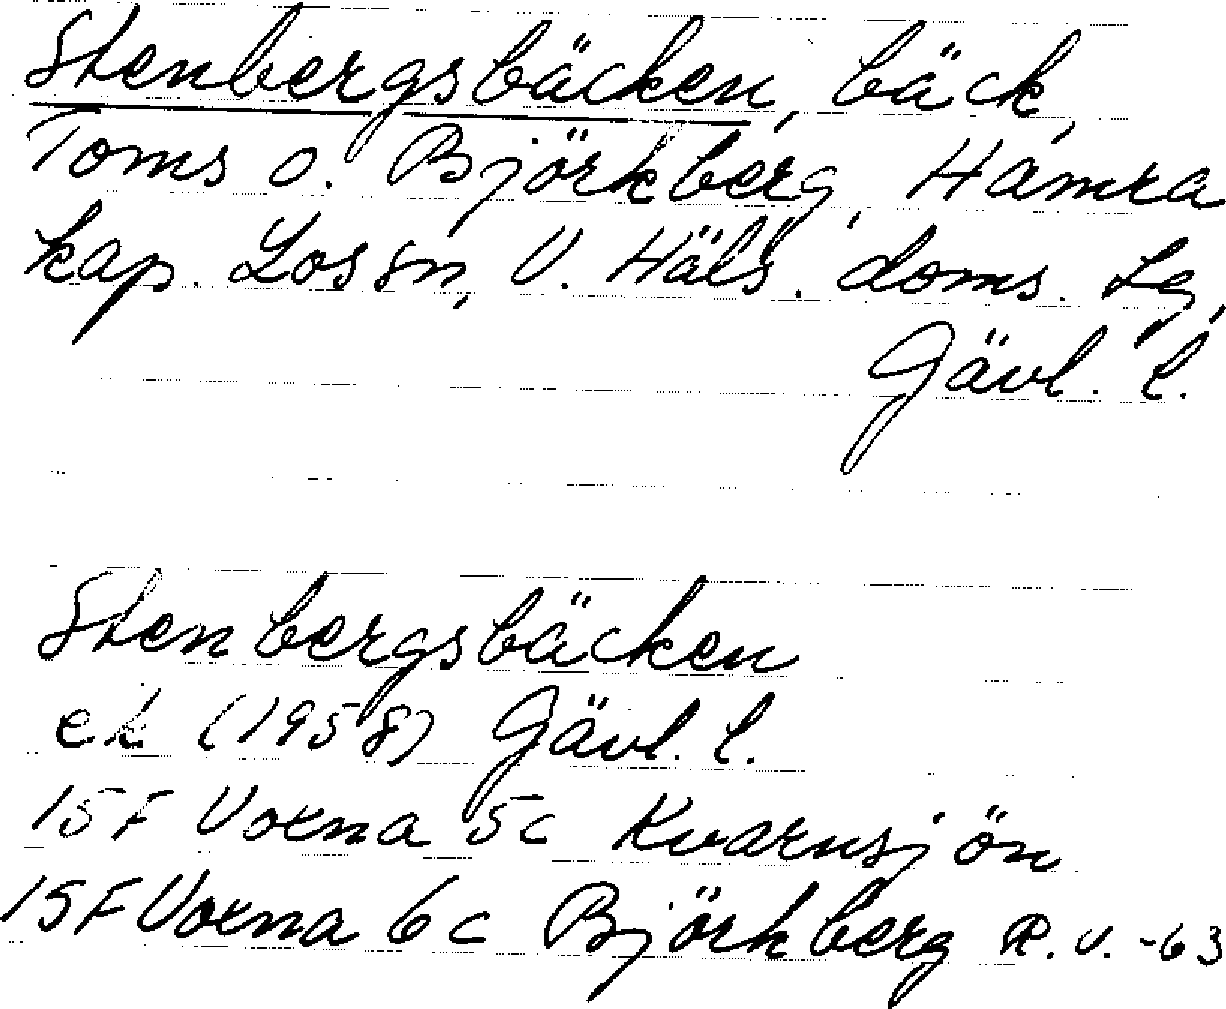 Stenbergsbäcken, bäck,
Toms o. Björkberg, Hamra
kap. Los sn, V. Häls. doms. Lg,
Gävl. l.
Stenbergsbäcken
ek (1958) Gävl. l.
15F Voxna 5c Kvarnsjön
15F Voxna 6c Björkberg R.V.-63